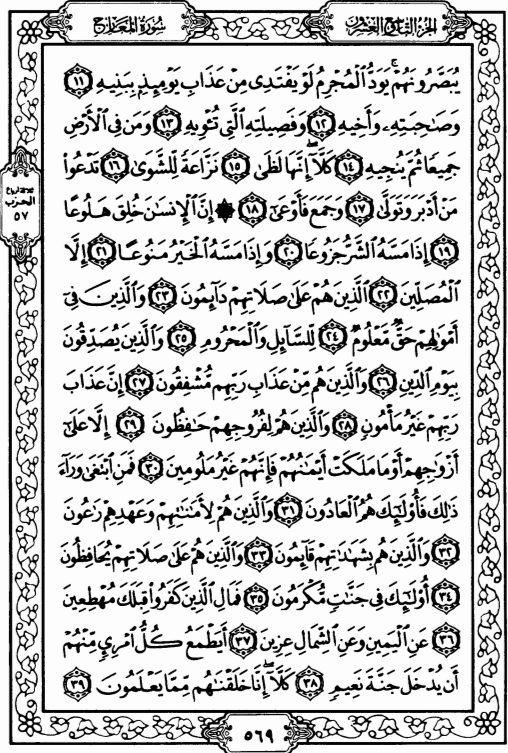 سُورَةُ المَعَارِجِ
الجُزْءُ التَّاسِعُ وَالعِشْرُونَ
يُبَصَّرُونَهُمۡۚ يَوَدُّ ٱلۡمُجۡرِمُ لَوۡ يَفۡتَدِي مِنۡ عَذَابِ يَوۡمِئِذِۭ بِبَنِيهِ ١١
وَصَٰحِبَتِهِۦ وَأَخِيهِ ١٢ وَفَصِيلَتِهِ ٱلَّتِي تُـٔۡوِيهِ ١٣ وَمَن فِي ٱلۡأَرۡضِ
جَمِيعٗا ثُمَّ يُنجِيهِ ١٤ كَلَّآۖ إِنَّهَا لَظَىٰ ١٥ نَزَّاعَةٗ لِّلشَّوَىٰ ١٦ تَدۡعُواْ
مَنۡ أَدۡبَرَ وَتَوَلَّىٰ ١٧ وَجَمَعَ فَأَوۡعَىٰٓ ١٨ ۞ إِنَّ ٱلۡإِنسَٰنَ خُلِقَ هَلُوعًا
١٩ إِذَا مَسَّهُ ٱلشَّرُّ جَزُوعٗا ٢٠ وَإِذَا مَسَّهُ ٱلۡخَيۡرُ مَنُوعًا ٢١ إِلَّا
ٱلۡمُصَلِّينَ ٢٢ ٱلَّذِينَ هُمۡ عَلَىٰ صَلَاتِهِمۡ دَآئِمُونَ ٢٣ وَٱلَّذِينَ فِيٓ
أَمۡوَٰلِهِمۡ حَقّٞ مَّعۡلُومٞ ٢٤ لِّلسَّآئِلِ وَٱلۡمَحۡرُومِ ٢٥ وَٱلَّذِينَ يُصَدِّقُونَ
بِيَوۡمِ ٱلدِّينِ ٢٦ وَٱلَّذِينَ هُم مِّنۡ عَذَابِ رَبِّهِم مُّشۡفِقُونَ ٢٧ إِنَّ عَذَابَ
رَبِّهِمۡ غَيۡرُ مَأۡمُونٖ ٢٨ وَٱلَّذِينَ هُمۡ لِفُرُوجِهِمۡ حَٰفِظُونَ ٢٩ إِلَّا عَلَىٰٓ
أَزۡوَٰجِهِمۡ أَوۡ مَا مَلَكَتۡ أَيۡمَٰنُهُمۡ فَإِنَّهُمۡ غَيۡرُ مَلُومِينَ ٣٠ فَمَنِ ٱبۡتَغَىٰ وَرَآءَ
ذَٰلِكَ فَأُوْلَٰٓئِكَ هُمُ ٱلۡعَادُونَ ٣١ وَٱلَّذِينَ هُمۡ لِأَمَٰنَٰتِهِمۡ وَعَهۡدِهِمۡ رَٰعُونَ
٣٢ وَٱلَّذِينَ هُم بِشَهَٰدَٰتِهِمۡ قَآئِمُونَ ٣٣ وَٱلَّذِينَ هُمۡ عَلَىٰ صَلَاتِهِمۡ يُحَافِظُونَ
٣٤ أُوْلَٰٓئِكَ فِي جَنَّٰتٖ مُّكۡرَمُونَ ٣٥ فَمَالِ ٱلَّذِينَ كَفَرُواْ قِبَلَكَ مُهۡطِعِينَ
٣٦ عَنِ ٱلۡيَمِينِ وَعَنِ ٱلشِّمَالِ عِزِينَ ٣٧ أَيَطۡمَعُ كُلُّ ٱمۡرِيٕٖ مِّنۡهُمۡ
أَن يُدۡخَلَ جَنَّةَ نَعِيمٖ ٣٨ كَلَّآۖ إِنَّا خَلَقۡنَٰهُم مِّمَّا يَعۡلَمُونَ ٣٩
الحزب
٥٧
٥٦٩